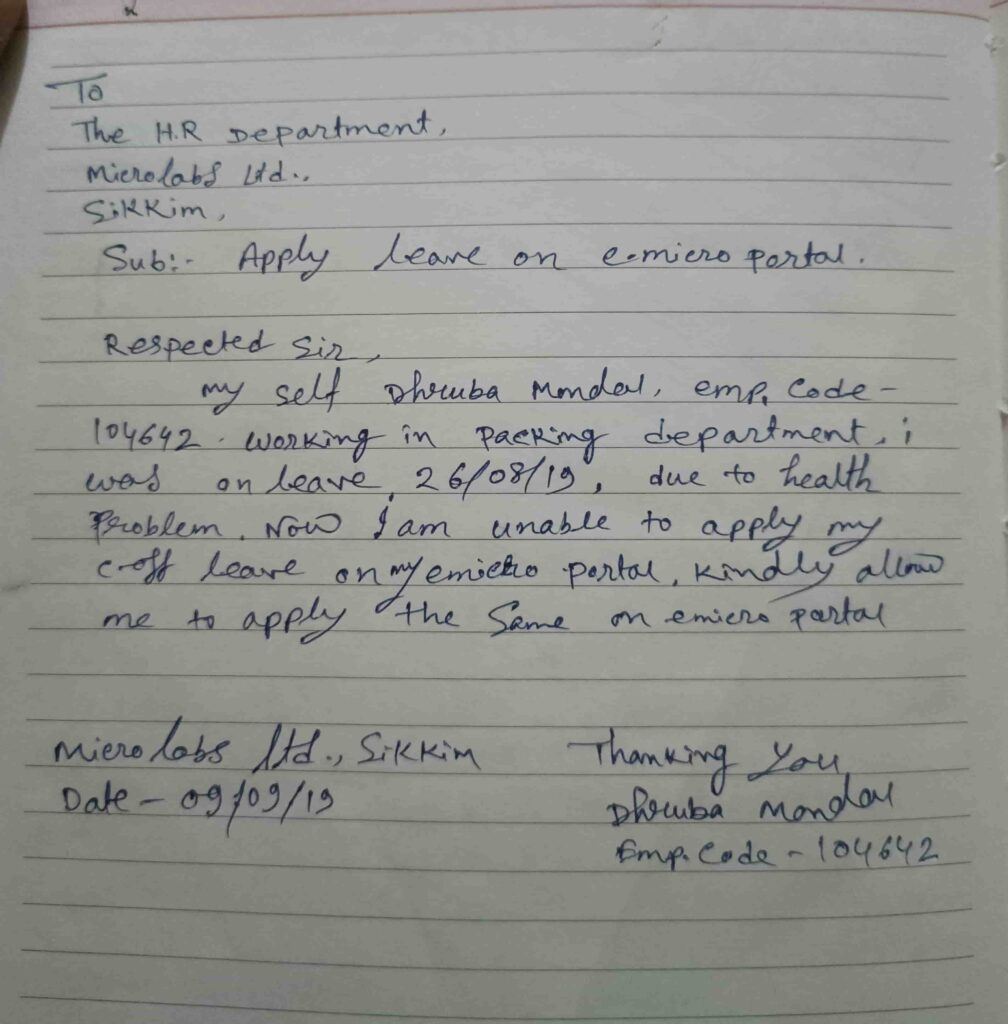 To
The H.R Department,
Microlabs Ltd..
Sikkim,
Sub:- Apply leave on e-micro portal.
Respected Sir,
my self Dhruba Mondal, emp. Code -
104642. working in Packing department, i
was on leave, 26/08/19, due to health
Problem. Now I am unable to apply my
c-off leave on my emicro portal, kindly allow
me to apply the Same on emicro portal
Micro labs ltd., Sikkim
Thanking You
Date - 09/09/19
Dhruba Mondal
Emp. Code - 104642